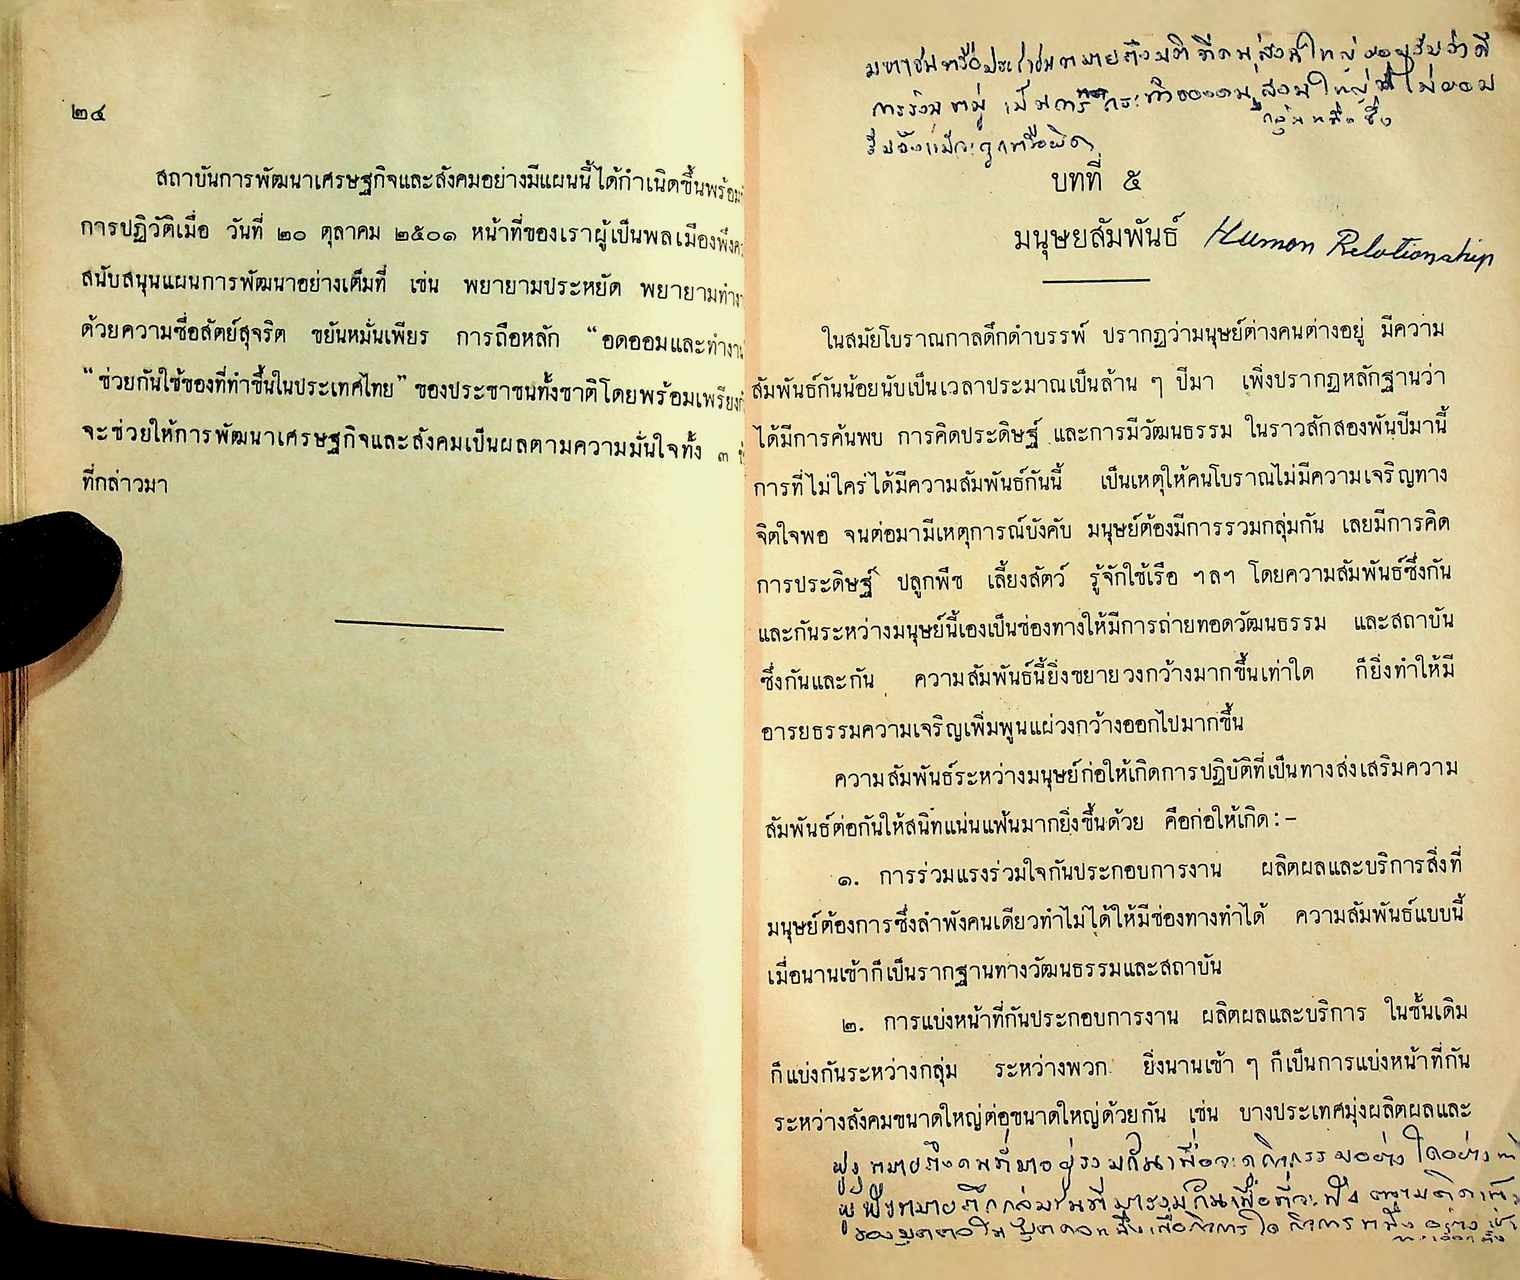 ๒๔
สถาบันการพัฒนาเศรษฐกิจและสังคมอย่างมีแผนนี้ได้กำเนิดขึ้นพร้อม
การปฏิวัติเมื่อ วันที่ ๒๐ ตุลาคม ๒๕๐๑ หน้าที่ของเราผู้เป็นพลเมืองพึง
สนับสนุนแผนการพัฒนาอย่างเต็มที่ เช่น พยายามประหยัด พยายามทำงา
ด้วยความซื่อสัตย์สุจริต ขยันหมั่นเพียร การถือหลัก “อดออมและทำงา
“ช่วยกันใช้ของที่ทำขึ้นในประเทศไทย” ของประชาชนทั้งชาติโดยพร้อมเพรียง
จะช่วยให้การพัฒนาเศรษฐกิจและสังคมเป็นผลตามความมั่นใจทั้ง ๓
ที่กล่าวมา
มหาชนหรือประชาชนหมายถึงมติที่คนส่วนใหญ่ยอมรับว่าดี
การรวมหมู่ เป็นการกระทำของคนส่วนใหญ่ที่ไม่ยอม
กลุ่มหนึ่ง ซึ่ง
รับฟังแม้จะถูกหรือผิด
บทที่ ๕
มนุษยสัมพันธ์ Human Relationship
ในสมัยโบราณกาลดึกดำบรรพ์ ปรากฏว่ามนุษย์ต่างคนต่างอยู่ มีความ
สัมพันธ์กันน้อยนับเป็นเวลาประมาณเป็นล้าน ๆ ปีมา เพิ่งปรากฏหลักฐานว่า
ได้มีการค้นพบ การคิดประดิษฐ์ และการมีวัฒนธรรม ในราวสักสองพันปีมานี้
การที่ไม่ใคร่ได้มีความสัมพันธ์กันนี้ เป็นเหตุให้คนโบราณไม่มีความเจริญทาง
จิตใจพอ จนต่อมามีเหตุการณ์บังคับ มนุษย์ต้องมีการรวมกลุ่มกัน เลยมีการคิด
การประดิษฐ์ ปลูกพืช เลี้ยงสัตว์ รู้จักใช้เรือ ฯลฯ โดยความสัมพันธ์ซึ่งกัน
และกันระหว่างมนุษย์นี้เองเป็นช่องทางให้มีการถ่ายทอดวัฒนธรรม และสถาบัน
ซึ่งกันและกัน ความสัมพันธ์นี้ยิ่งขยายวงกว้างมากขึ้นเท่าใด ก็ยิ่งทำให้มี
อารยธรรมความเจริญเพิ่มพูนแผ่วงกว้างออกไปมากขึ้น
ความสัมพันธ์ระหว่างมนุษย์ก่อให้เกิดการปฏิบัติที่เป็นทางส่งเสริมความ
สัมพันธ์ต่อกันให้สนิทแน่นแฟ้นมากยิ่งขึ้นด้วย คือก่อให้เกิด :–
๑. การร่วมแรงร่วมใจกันประกอบการงาน ผลิตผลและบริการสิ่งที่
มนุษย์ต้องการซึ่งลำพังคนเดียวทำไม่ได้ให้มีช่องทางทำได้ ความสัมพันธ์แบบนี้
เมื่อนานเข้าก็เป็นรากฐานทางวัฒนธรรมและสถาบัน
๒. การแบ่งหน้าที่กันประกอบการงาน ผลิตผลและบริการ ในชั้นเดิม
ก็แบ่งกันระหว่างกลุ่ม ระหว่างพวก ยิ่งนานเข้า ๆ ก็เป็นการแบ่งหน้าที่กัน
ระหว่างสังคมขนาดใหญ่ต่อขนาดใหญ่ด้วยกัน เช่น บางประเทศมุ่งผลิตผลและ
ฝูง หมายถึงคนที่มาอยู่รวมกันเพื่อจะดูกิจกรรมอย่างใดอย่าง
ผู้ฟังหมายถึงกลุ่มชนที่มารวมกันเพื่อที่จะฟัง ความคิด